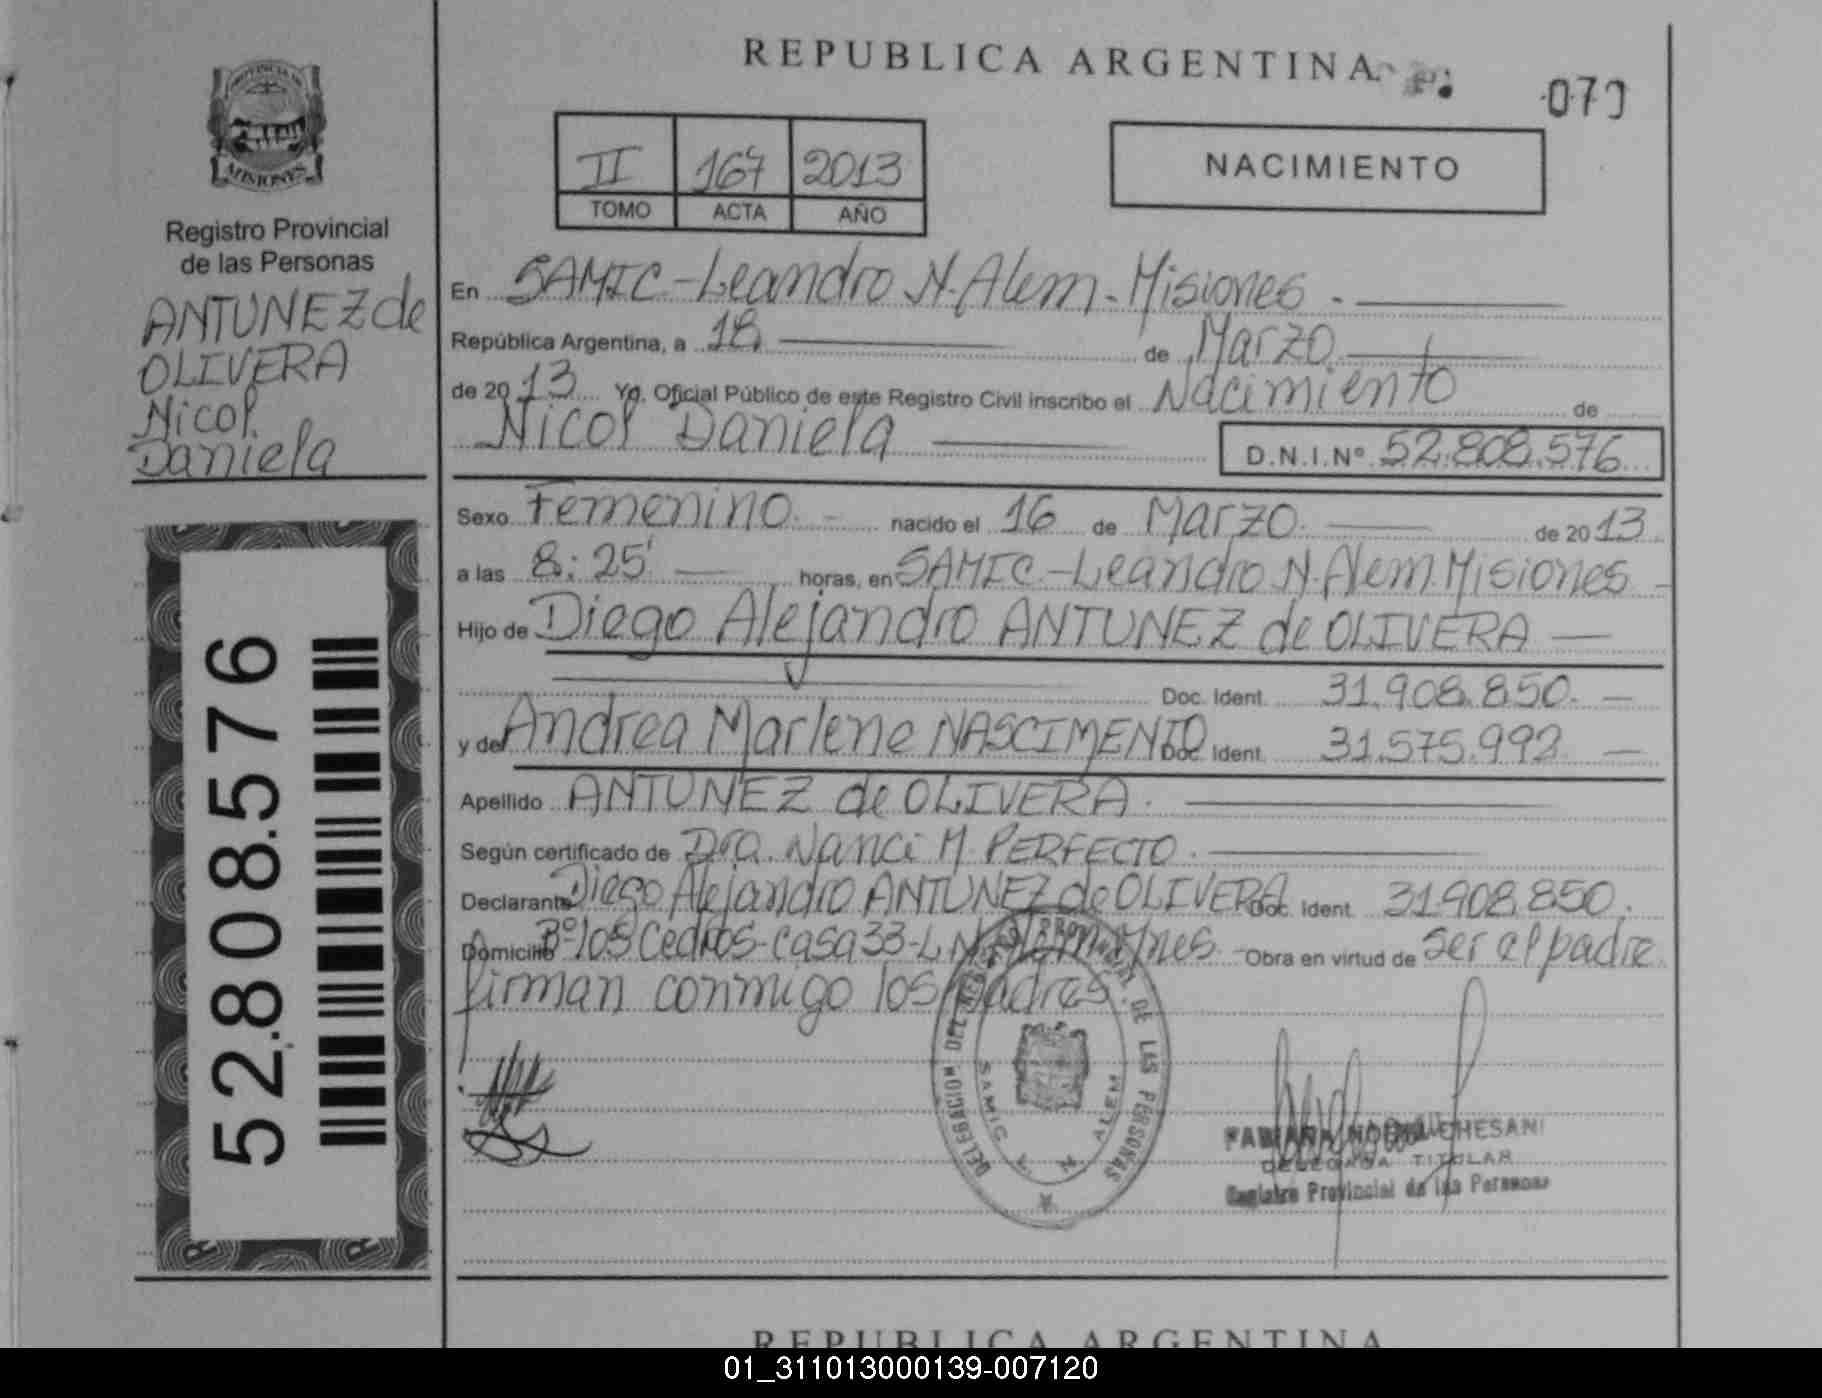 REPUBLICA ARGENTINA
070
PROVINCIA DE
MISIONES
Registro Provincial
de las Personas
ANTUNEZ de
OLIVERA
Nicol
Daniela
52.808.576
II 167 2013
TOMO ACTA AÑO
NACIMIENTO
En SAMIC-Leandro N. Alem. Misiones.
República Argentina, a 18 de Marzo
de 2013 Yo, Oficial Público de este Registro Civil inscribo el Nacimiento de
Nicol Daniela D.N.I.Nº 52.808.576
Sexo Femenino. - nacido el 16 de Marzo. de 2013
a las 8:25' horas, en SAMIC-Leandro N. Alem. Misiones -
Hijo de Diego Alejandro ANTUNEZ de OLIVERA
Doc. Ident. 31.908.850.
y de Andrea Marlene NASCIMENTO Doc. Ident. 31.575.992
Apellido ANTUNEZ de OLIVERA.
Según certificado de Dra. Nanci M. PERFECTO.
Declarante Diego Alejandro ANTUNEZ de OLIVERA Doc. Ident. 31.908.850.
Domicilio Bº los Cedros-casa 33-L.N. Alem Mnes. - Obra en virtud de ser el padre.
firman conmigo los padres.
DELEGACION DEL REGISTRO PROVINCIAL DE LAS PERSONAS
SAMIC L. N. ALEM
FABIANA CHESANI
DELEGADA TITULAR
Registro Provincial de las Personas
REPUBLICA ARGENTINA
01_311013000139-007120